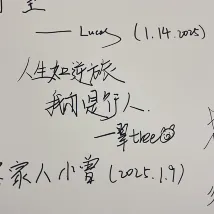 —— Lucas (1.14.2025)
人生如逆旅
我亦是行人.
一犟tree
客家人小曾 (2025.1.9)